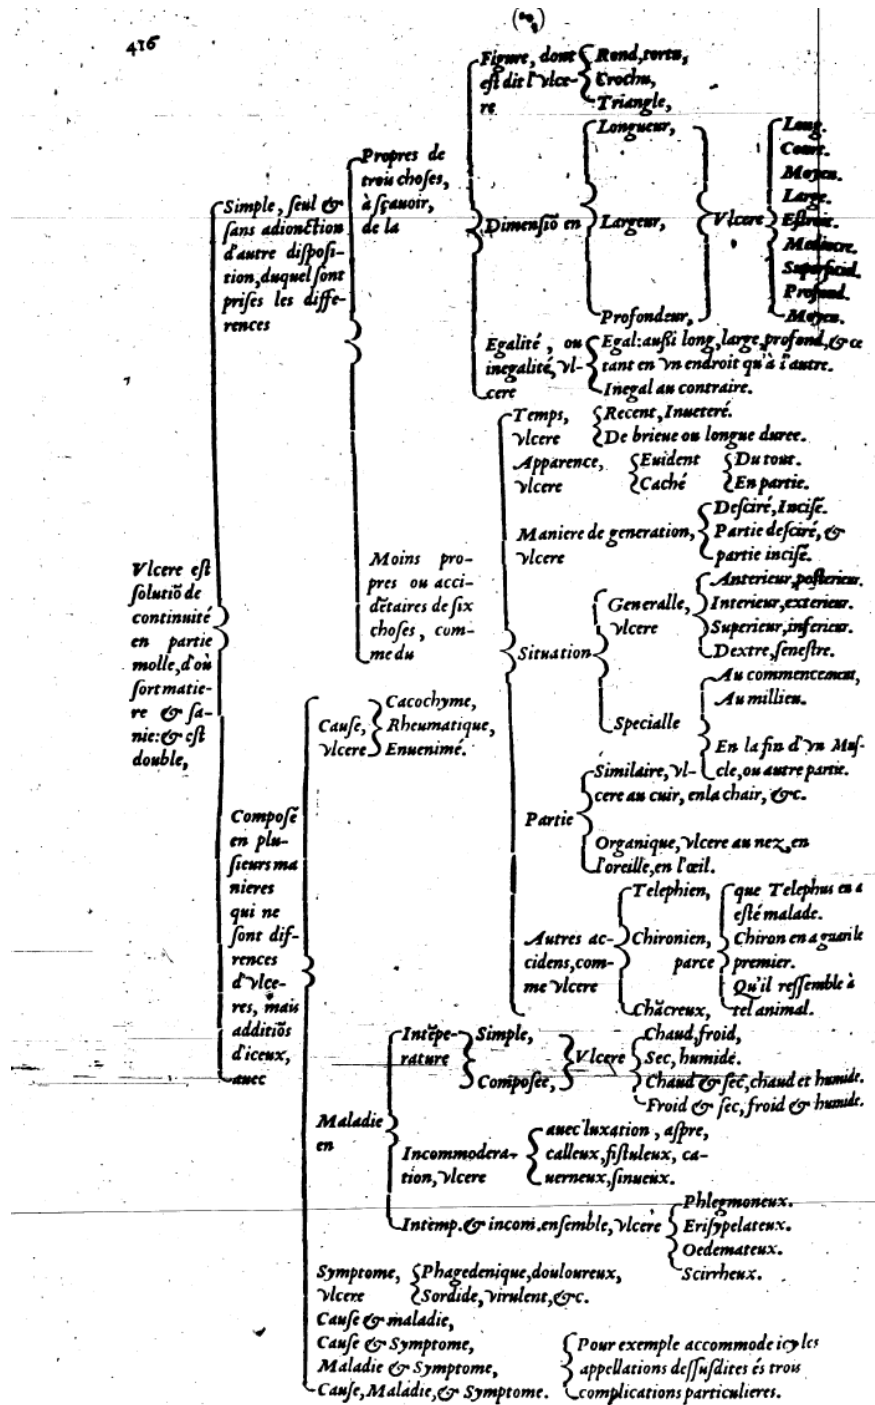 416
Vlcere est
solutiõ de
continuité
en partie
molle, d'où
sort matie-
re & sa-
nie: & est
double,
Simple, seul &
sans adionction
d'autre disposi-
tion, duquel sont
prises les diffe-
rences
Propres de
trois choses,
à sçauoir,
de la
Figure, dont
est dit l'vlce-
re
Rond, tortu,
Crochu,
Triangle,
Dimensiõ en
Longueur,
Largeur,
Profondeur,
Vlcere
Long.
Court.
Moyen.
Large.
Estroit.
Mediocre.
Superficiel.
Profond.
Moyen.
Egalité, ou
inegalité, vl-
cere
Egal: aussi long, large, profond, & ce
tant en vn endroit qu'à l'autre.
Inegal au contraire.
Moins pro-
pres ou acci-
dẽtaires de six
choses, com-
me du
Temps,
vlcere
Recent, Inueteré.
De brieue ou longue duree.
Apparence,
vlcere
Euident
Caché
Du tout.
En partie.
Maniere de generation,
vlcere
Desciré, Incisé.
Partie desciré, &
partie incisé.
Situation
Generalle,
vlcere
Anterieur, posterieur.
Interieur, exterieur.
Superieur, inferieur.
Dextre, senestre.
Specialle
Au commencement,
Au millieu.
En la fin d'vn Mus-
cle, ou autre partie.
Partie
Similaire, vl-
cere au cuir, en la chair, &c.
Organique, vlcere au nez, en
l'oreille, en l'œil.
Autres ac-
cidens, com-
me vlcere
Telephien,
Chironien,
parce
Chãcreux,
que Telephus en a
esté malade.
Chiron en a guari le
premier.
Qu'il ressemble à
tel animal.
Composé
en plu-
sieurs ma
nieres
qui ne
sont dif-
rences
d'vlce-
res, mais
additiõs
d'iceux,
auec
Cause,
vlcere
Cacochyme,
Rheumatique,
Enuenimé.
Maladie
en
Intẽpe-
rature
Simple,
Composee,
Vlcere
Chaud, froid,
Sec, humide.
Chaud & sec, chaud et humide.
Froid & sec, froid & humide.
Incommodera-
tion, vlcere
auec luxation, aspre,
calleux, fistuleux, ca-
uerneux, sinueux.
Intemp. & incom. ensemble, vlcere
Phlegmoneux.
Erisypelateux.
Oedemateux.
Scirrheux.
Symptome,
vlcere
Phagedenique, douloureux,
Sordide, virulent, &c.
Cause & maladie,
Cause & Symptome,
Maladie & Symptome,
Cause, Maladie, & Symptome.
Pour exemple accommode icy les
appellations dessusdites és trois
complications particulieres.